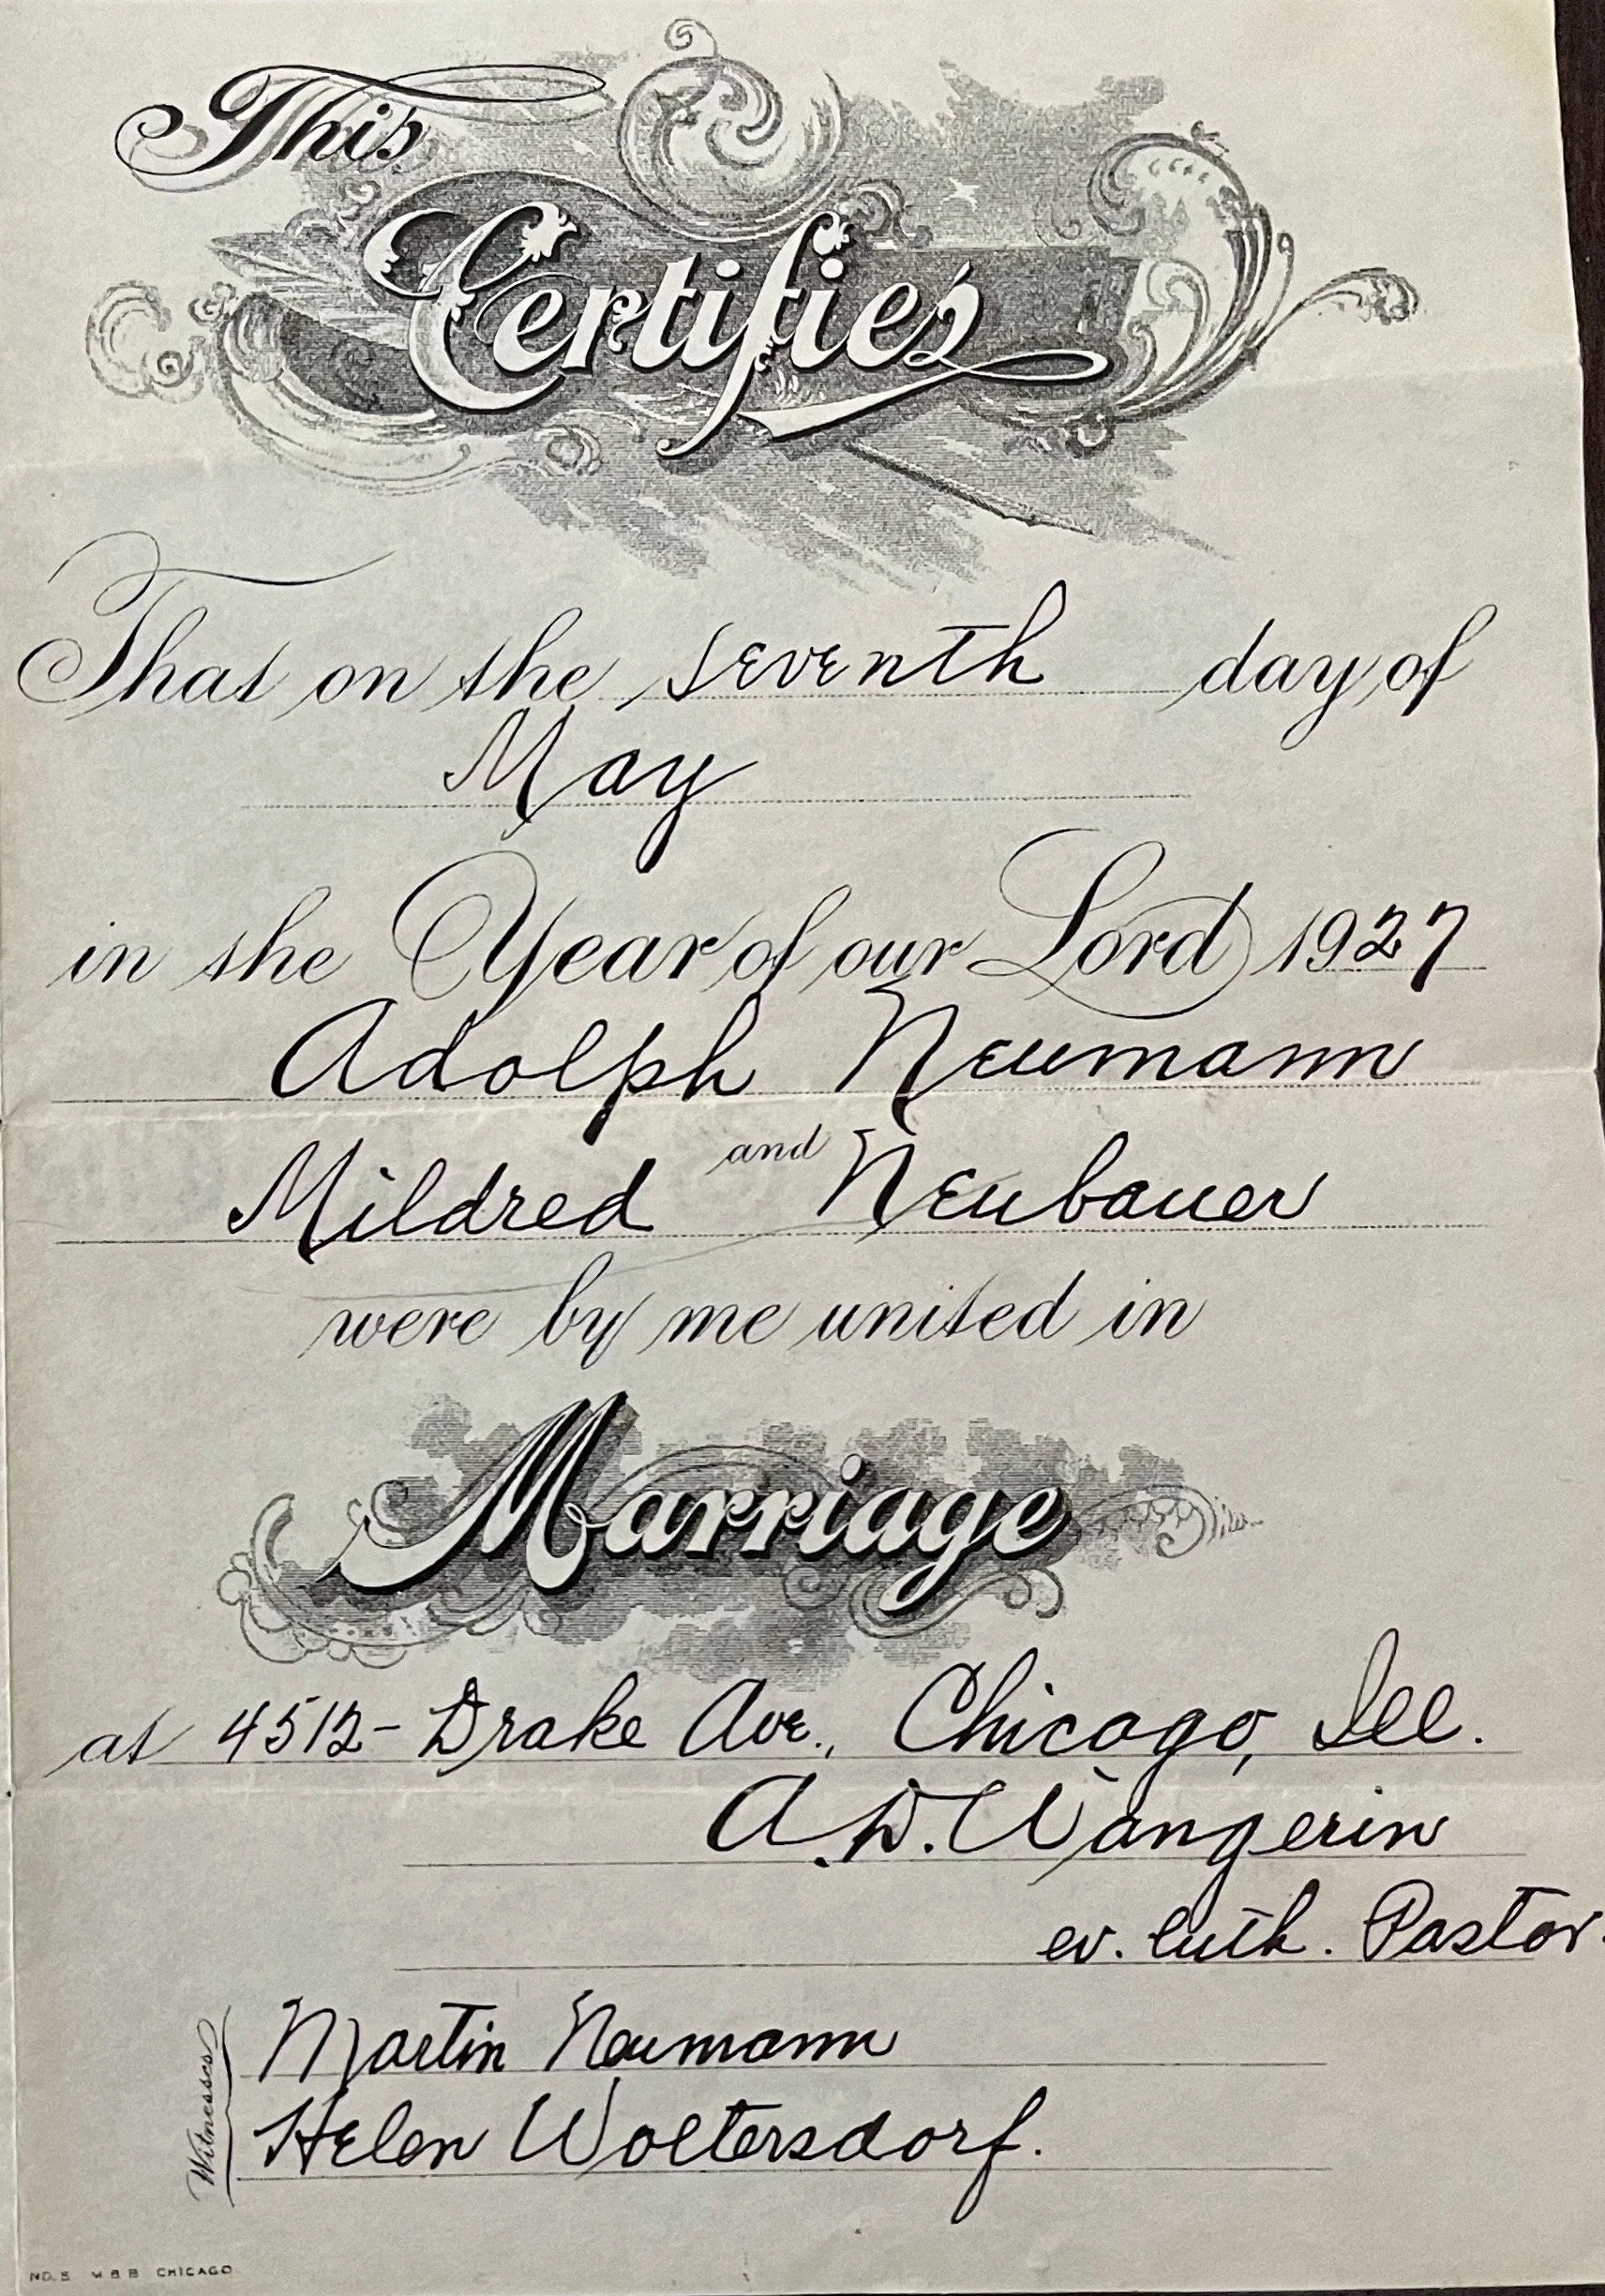 This
Certifies
That on the seventh day of
May
in the Year of our Lord 1927
Adolph Neumann
and
Mildred Neubauer
were by me united in
Marriage
at 4512- Drake Ave., Chicago, Ill.
A. D. Wangerin
ev. luth. Pastor.
Witnesses
Martin Neumann
Helen Woltersdorf.
NO. 5 M & B CHICAGO